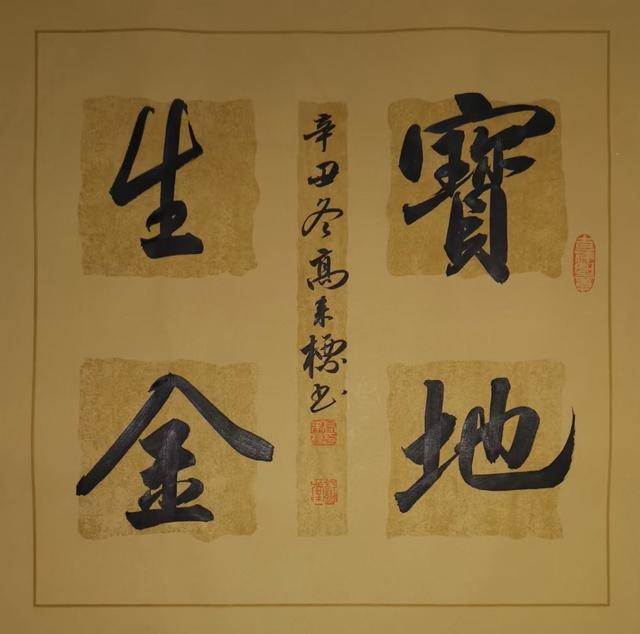 寶地
生金
辛丑冬高來標书